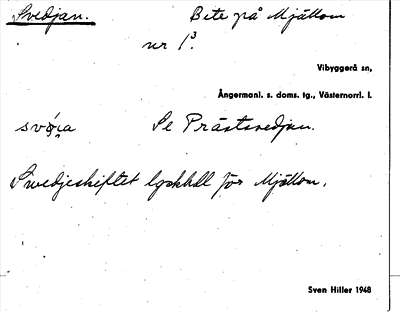 Svedjan. Bete på Mjällom
nr 1³.
Vibyggerå sn,
Ångermanl. s. doms. tg., Västernorrl. l.
Se Prästsvedjan.
Svedjeskiftet för Mjällom.
Sven Hiller 1948